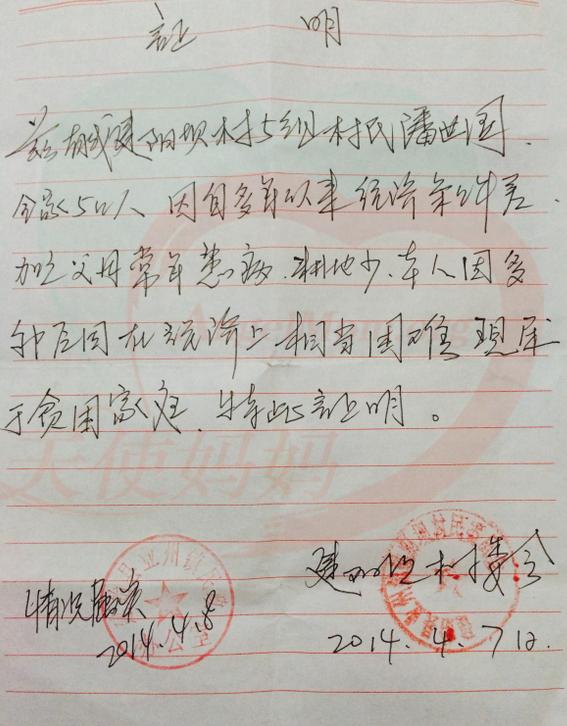 证 明
兹有我建阳坝村5组村民潘世国.
全家5口人、因自多年以来经济条件差、
加之父母常年患病、耕地少、本人因多
种原因在经济上相当困难 现属
于贫困家庭、特此证明。
天使妈妈
情况属实
2014.4.8
村委会
2014.4.7日.